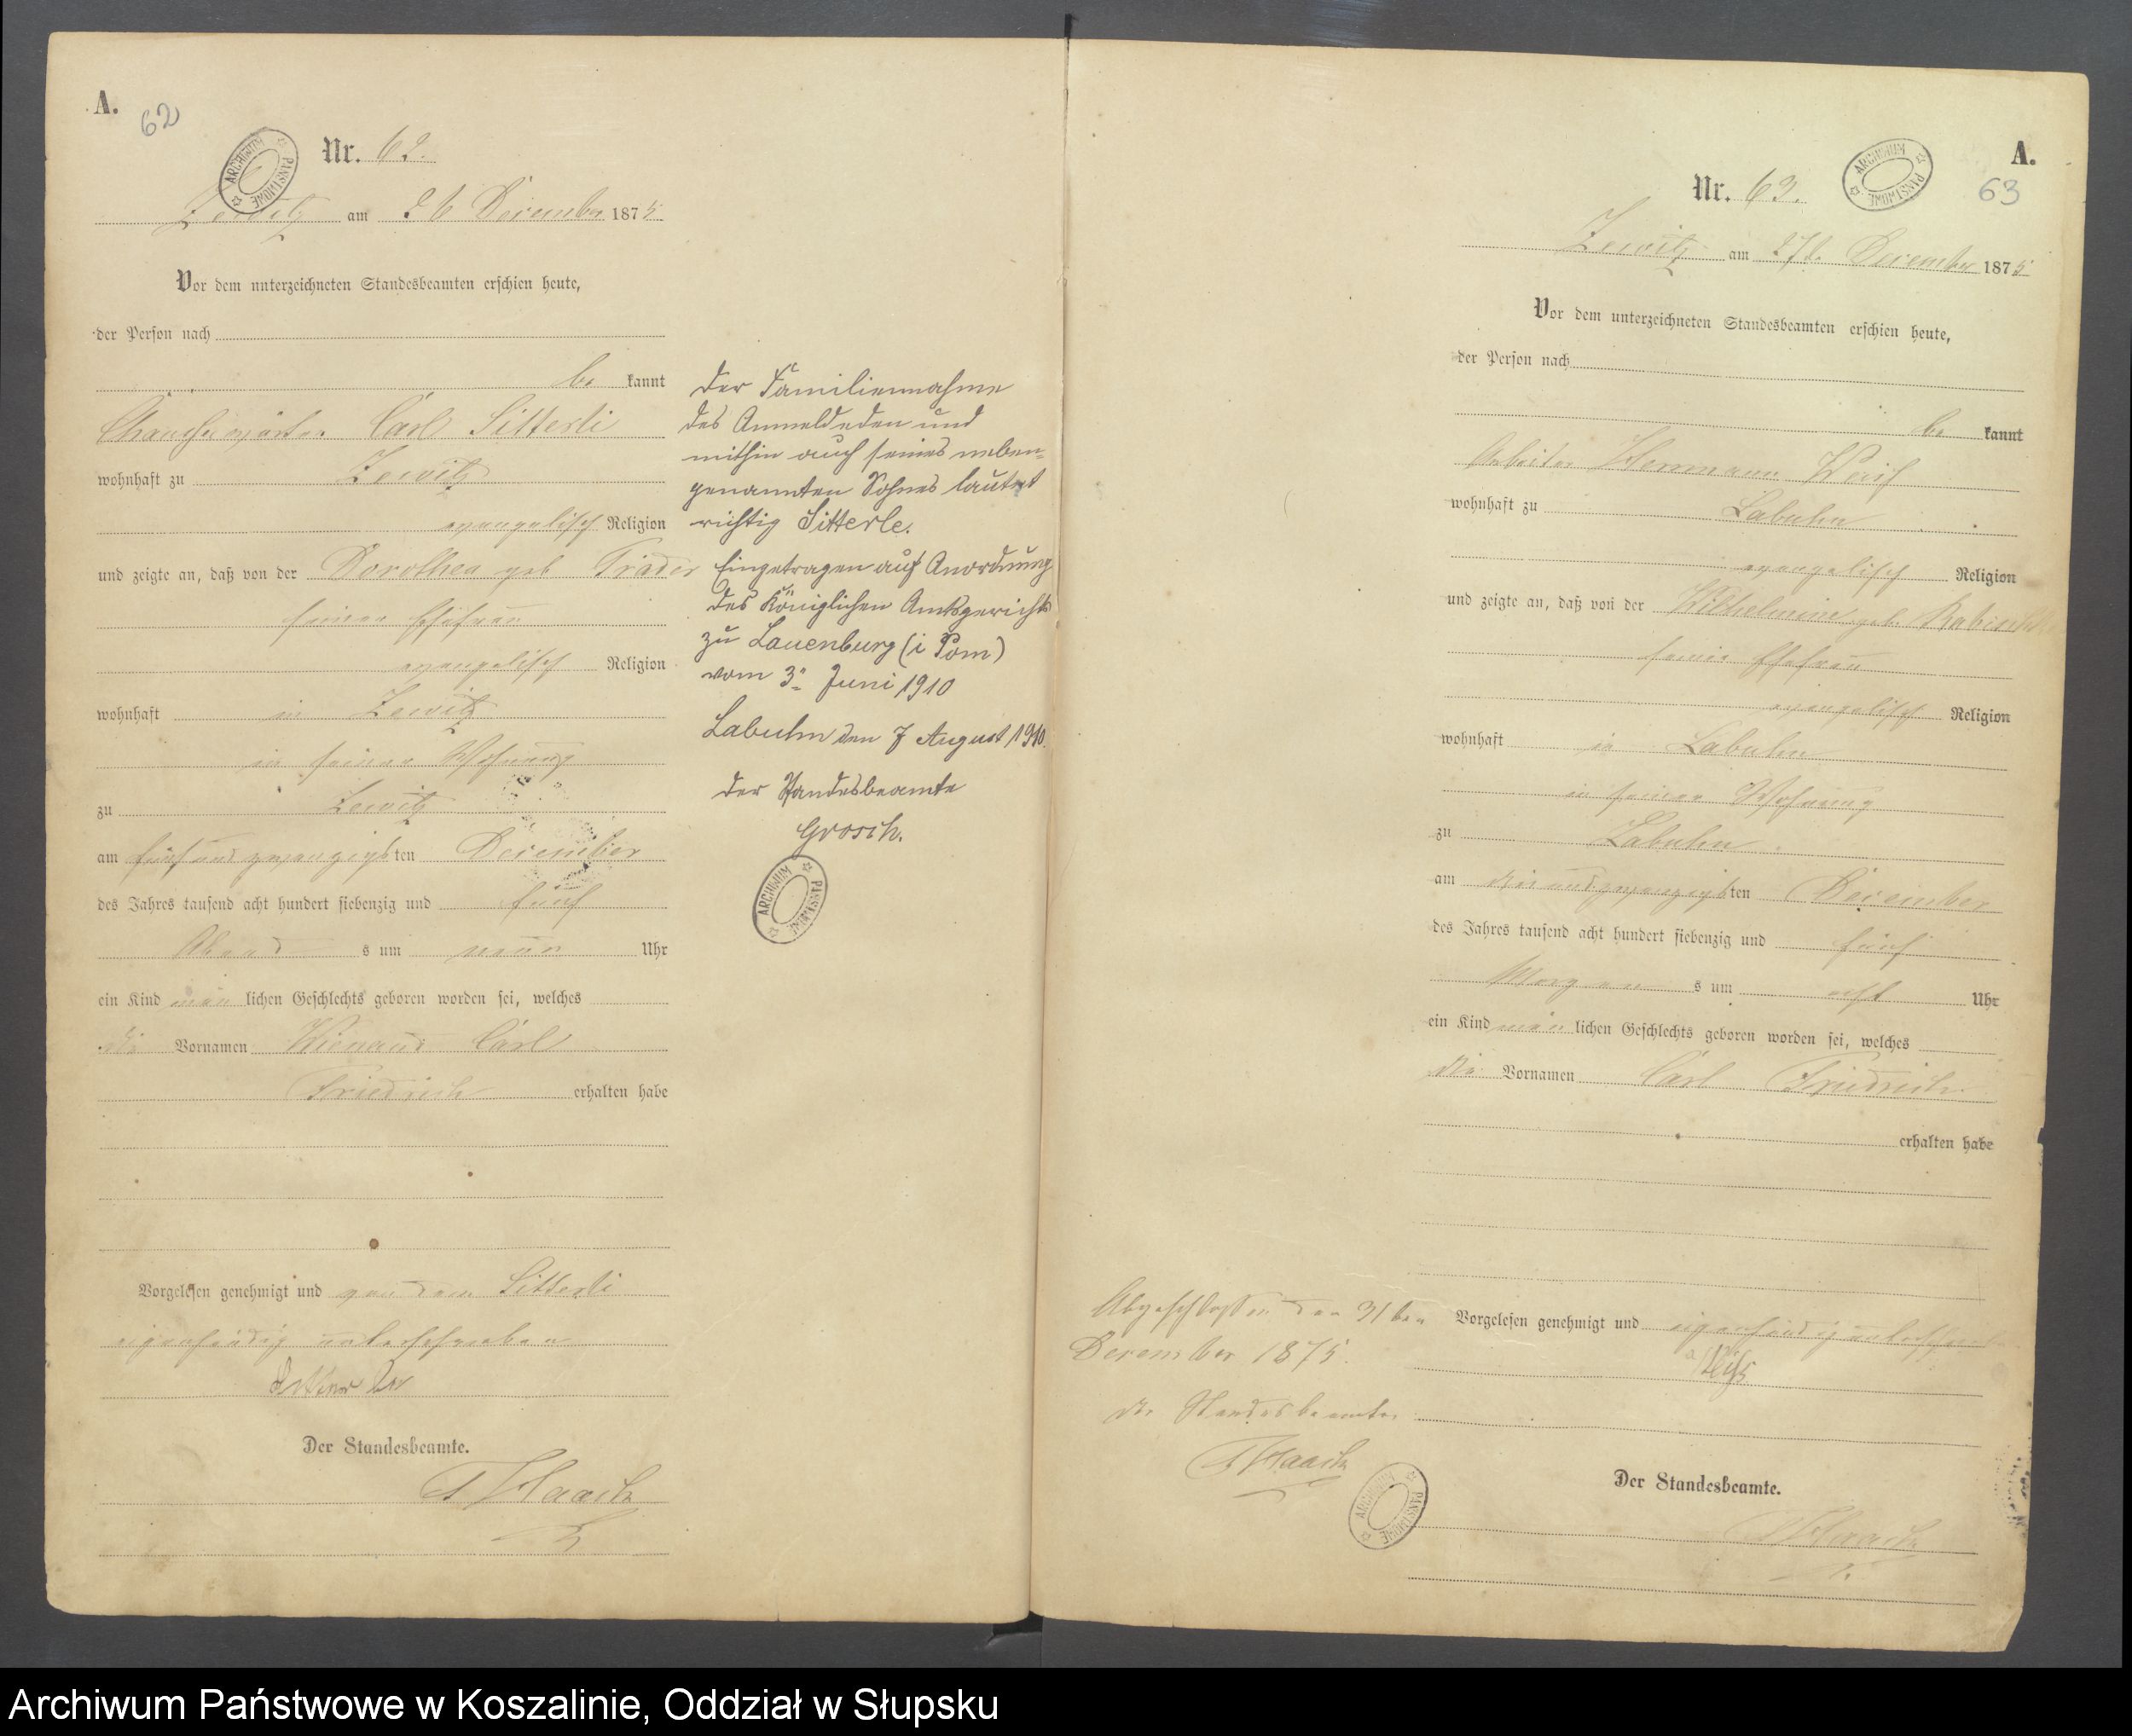 A.
62
Nr. 62.
ARCHIWUM PAŃSTWOWE
Zewitz am 26 December 1875.
Vor dem unterzeichneten Standesbeamten erschien heute,
der Person nach
be kannt
Chausseewärter Carl Sitterli
wohnhaft zu Zewitz
evangelisch Religion
und zeigte an, daß von der Dorothea geb Träder
seiner Ehefrau
evangelisch Religion
wohnhaft in Zewitz
in seiner Wohnung
zu Zewitz
am fünf und zwanzigsten December
des Jahres tausend acht hundert siebenzig und fünf
Abend s um neun Uhr
ein Kind män lichen Geschlechts geboren worden sei, welches
die Vornamen Wienand Carl
Friedrich erhalten habe
Vorgelesen genehmigt und von dem Sitterli
eigenhändig unterschrieben
Der Standesbeamte.
Haack
Der Familiennahme
des Anmeldeden und
mithin auch seines neben=
genannten Sohnes lautet
richtig Sitterle.
Eingetragen auf Anordnung
des Königlichen Amtsgerichts
zu Lauenburg (i Pom)
vom 3ⁿ Juni 1910
Labuhn den 7 August 1910.
der Standesbeamte
Grosch.
ARCHIWUM PAŃSTWOWE
A.
63
Nr. 63.
ARCHIWUM PAŃSTWOWE
Zewitz am 27t. December 1875
Vor dem unterzeichneten Standesbeamten erschien heute,
der Person nach
be kannt
Arbeiter Herrmann
wohnhaft zu Labuhn
evangelisch Religion
und zeigte an, daß von der Wilhelmine geb.
seine Ehefrau
evangelisch Religion
wohnhaft in Labuhn
in seiner Wohnung
zu Labuhn
am drei und zwanzigsten December
des Jahres tausend acht hundert siebenzig und fünf
Morgen s um acht Uhr
ein Kind män lichen Geschlechts geboren worden sei, welches
die Vornamen Carl Friedrich
erhalten habe
Vorgelesen genehmigt und eigenhändig
Der Standesbeamte.
Haack
Abgeschlossen den 31ten
December 1875.
der Standesbeamte
Haack
ARCHIWUM PAŃSTWOWE
Archiwum Państwowe w Koszalinie, Oddział w Słupsku